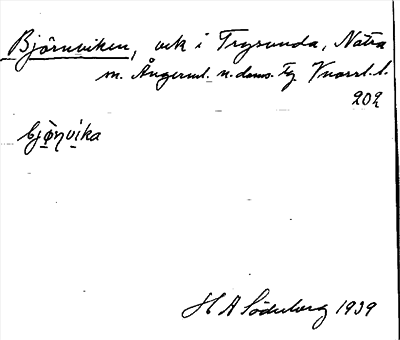 Björnviken, vik i Trysunda, Nätra
m. Ångerml. n. doms. Tg. Vnorrl. l.
202
bjø̀ṇvika
H A Söderberg 1939